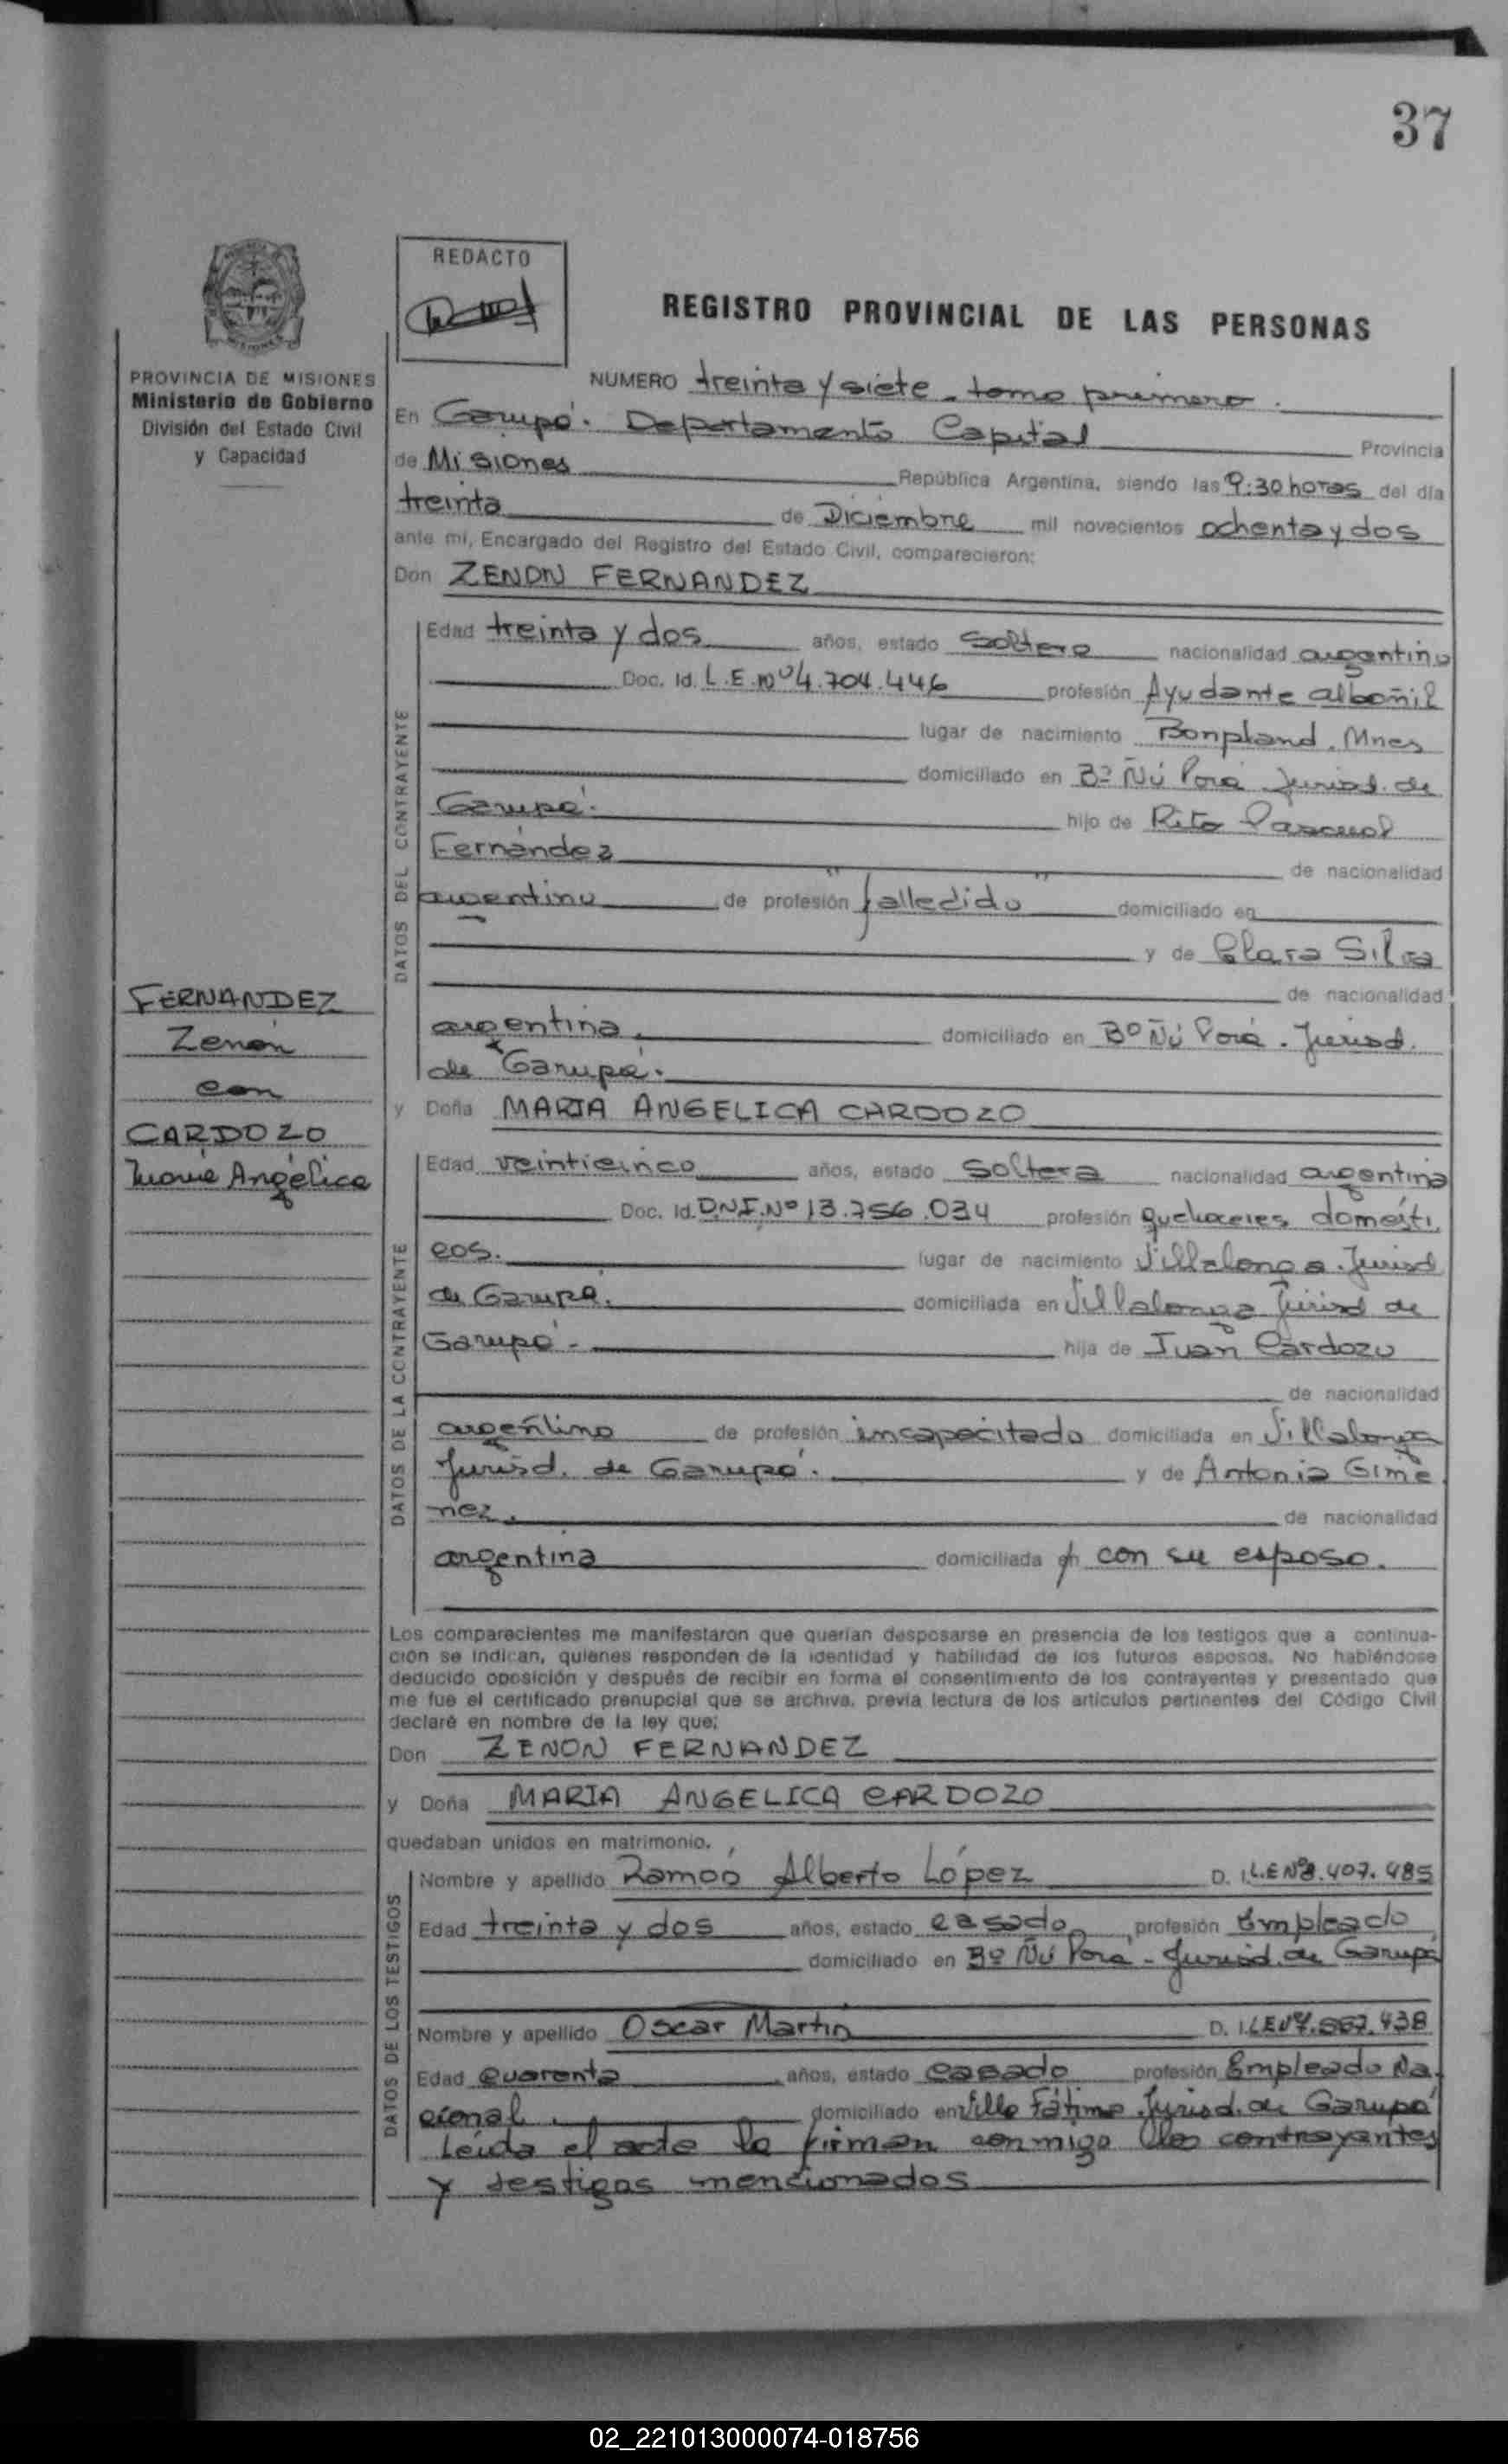 37
REDACTO
REGISTRO PROVINCIAL DE LAS PERSONAS
PROVINCIA DE MISIONES
Ministerio de Gobierno
División del Estado Civil
y Capacidad
NUMERO treinta y siete - tomo primero.
En Garupá. Departamento Capital Provincia
de Misiones República Argentina, siendo las 9:30 horas del día
treinta de Diciembre mil novecientos ochenta y dos
ante mí, Encargado del Registro del Estado Civil, comparecieron:
Don ZENON FERNANDEZ
Edad treinta y dos años, estado soltero nacionalidad argentino
Doc. Id. L.E. nº 4.704.446 profesión Ayudante albañil
lugar de nacimiento Bonpland. Mnes
domiciliado en Bº Ñú Porá Jurisd. de
Garupá. hijo de Rito Pascual
Fernández de nacionalidad
argentino de profesión "falledido" domiciliado en
y de Clara Silva
de nacionalidad
argentina. domiciliado en Bº Ñú Porá. Jurisd.
de Garupá.
DATOS DEL CONTRAYENTE
FERNANDEZ
Zenón
con
CARDOZO
María Angélica
y Doña MARIA ANGELICA CARDOZO
Edad veinticinco años, estado soltera nacionalidad argentina
Doc. Id. D.N.I. Nº 13.756.034 profesión quehaceres domésti
cos. lugar de nacimiento Villalonga. Jurisd
de Garupá. domiciliada en Villalonga Jurisd de
Garupá - hija de Juan Cardozo
de nacionalidad
argentino de profesión incapacitado domiciliada en Villalonga
Jurisd. de Garupá. y de Antonia Gimé
nez. de nacionalidad
argentina domiciliada en con su esposo.
DATOS DE LA CONTRAYENTE
Los comparecientes me manifestaron que querían desposarse en presencia de los testigos que a continua-
ción se indican, quienes responden de la identidad y habilidad de los futuros esposos. No habiéndose
deducido oposición y después de recibir en forma el consentimiento de los contrayentes y presentado que
me fue el certificado prenupcial que se archiva, previa lectura de los artículos pertinentes del Código Civil
declaré en nombre de la ley que;
Don ZENON FERNANDEZ
y Doña MARIA ANGELICA CARDOZO
quedaban unidos en matrimonio.
Nombre y apellido Ramón Alberto López D. I. L.E Nº 8.407.485
Edad treinta y dos años, estado casado profesión Empleado
domiciliado en Bº Ñú Porá - Jurisd. de Garupá
Nombre y apellido Oscar Martin D. I. LE Nº 7.
Edad Cuarenta años, estado casado profesión Empleado Na
cional. domiciliado en Villa Fátima. Jurisd. de Garupá
DATOS DE LOS TESTIGOS
Leída el acta la firman conmigo los contrayentes
y testigos mencionados
02_221013000074-018756